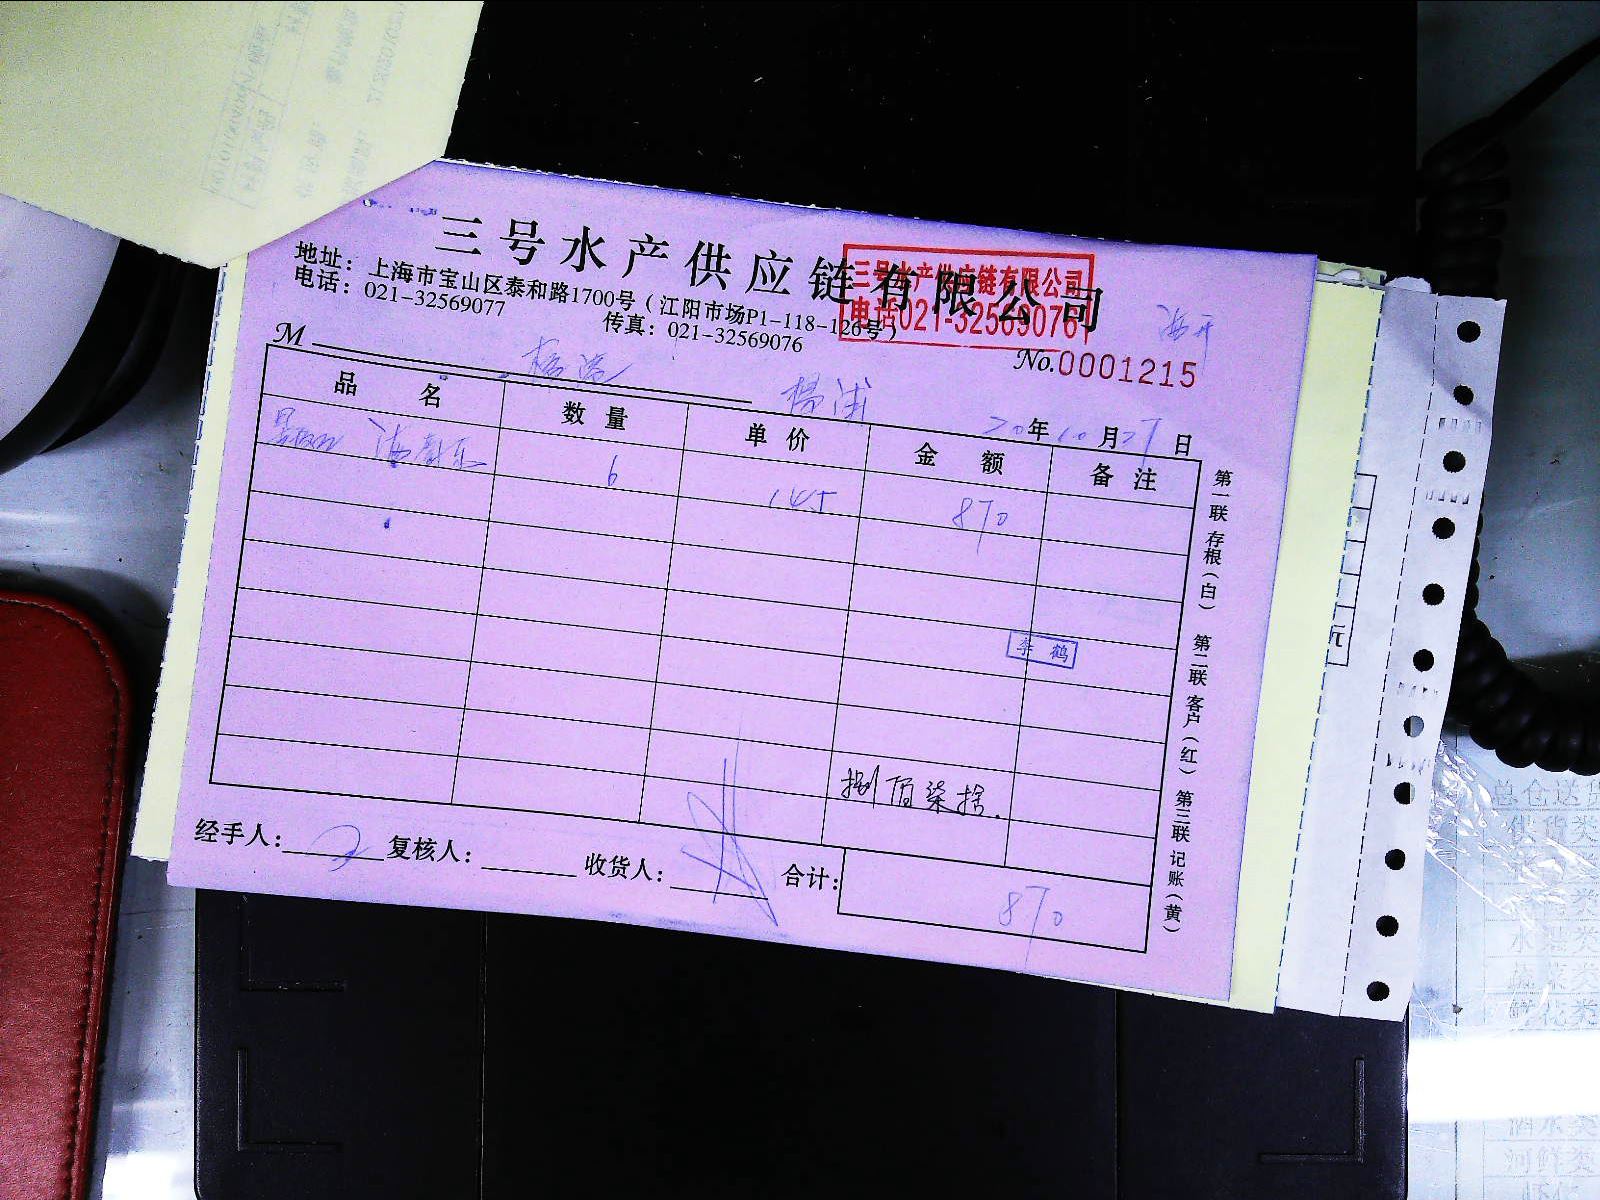 三号水产供应链有限公司
地址：上海市宝山区泰和路1700号（江阳市场P1-118-126号）
电话：021-32569077 传真：021-32569076
三号水产供应链有限公司
电话021-32569076
No.0001215
M
杨浦
20年10月27日
品名 数量 单价 金额 备注
6 145 870
李鹤
捌佰柒拾.
经手人： 复核人： 收货人： 合计： 870
第一联 存根（白） 第二联 客户（红） 第三联 记账（黄）
元
总仓送货
供货类
水
蔬菜类
鲜花类
酒水类
河鲜类